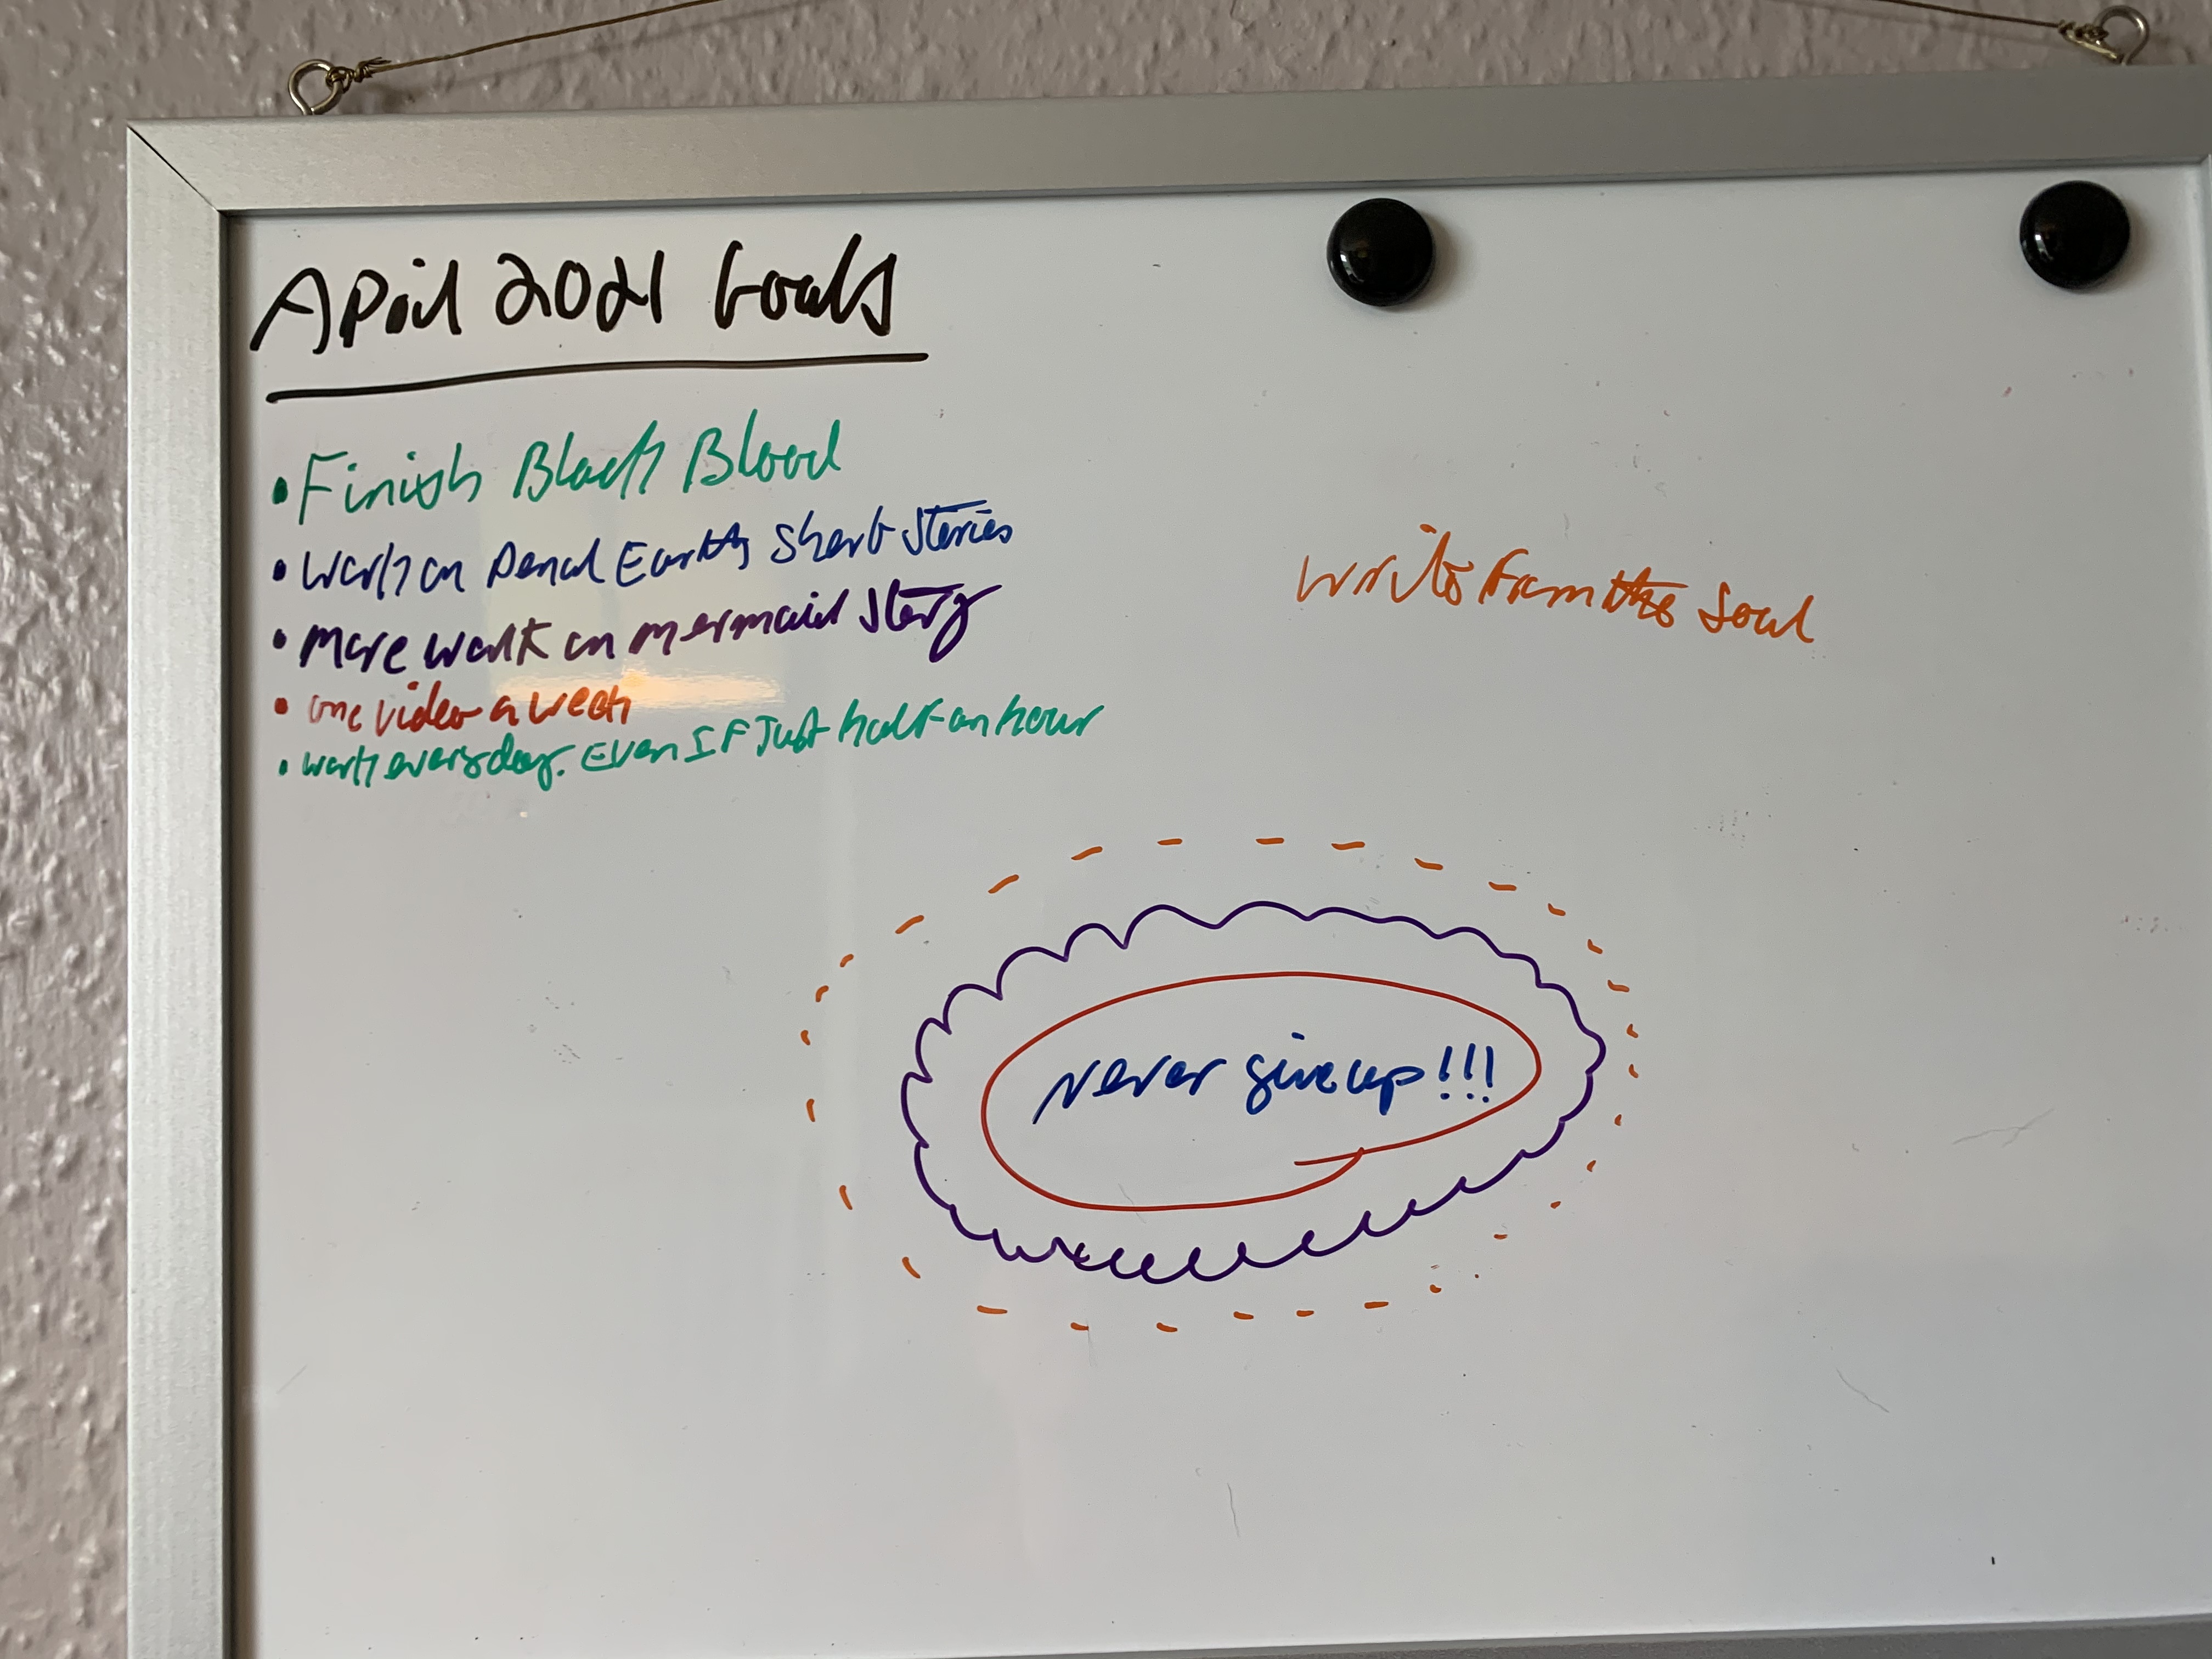 April 2021 Goals
• Finish Black Blood
• Work on Penal Earth short stories
• More work on mermaid story
• one video a week
• work everyday. Even IF Just half-an hour
write from the soul
Never give up!!!